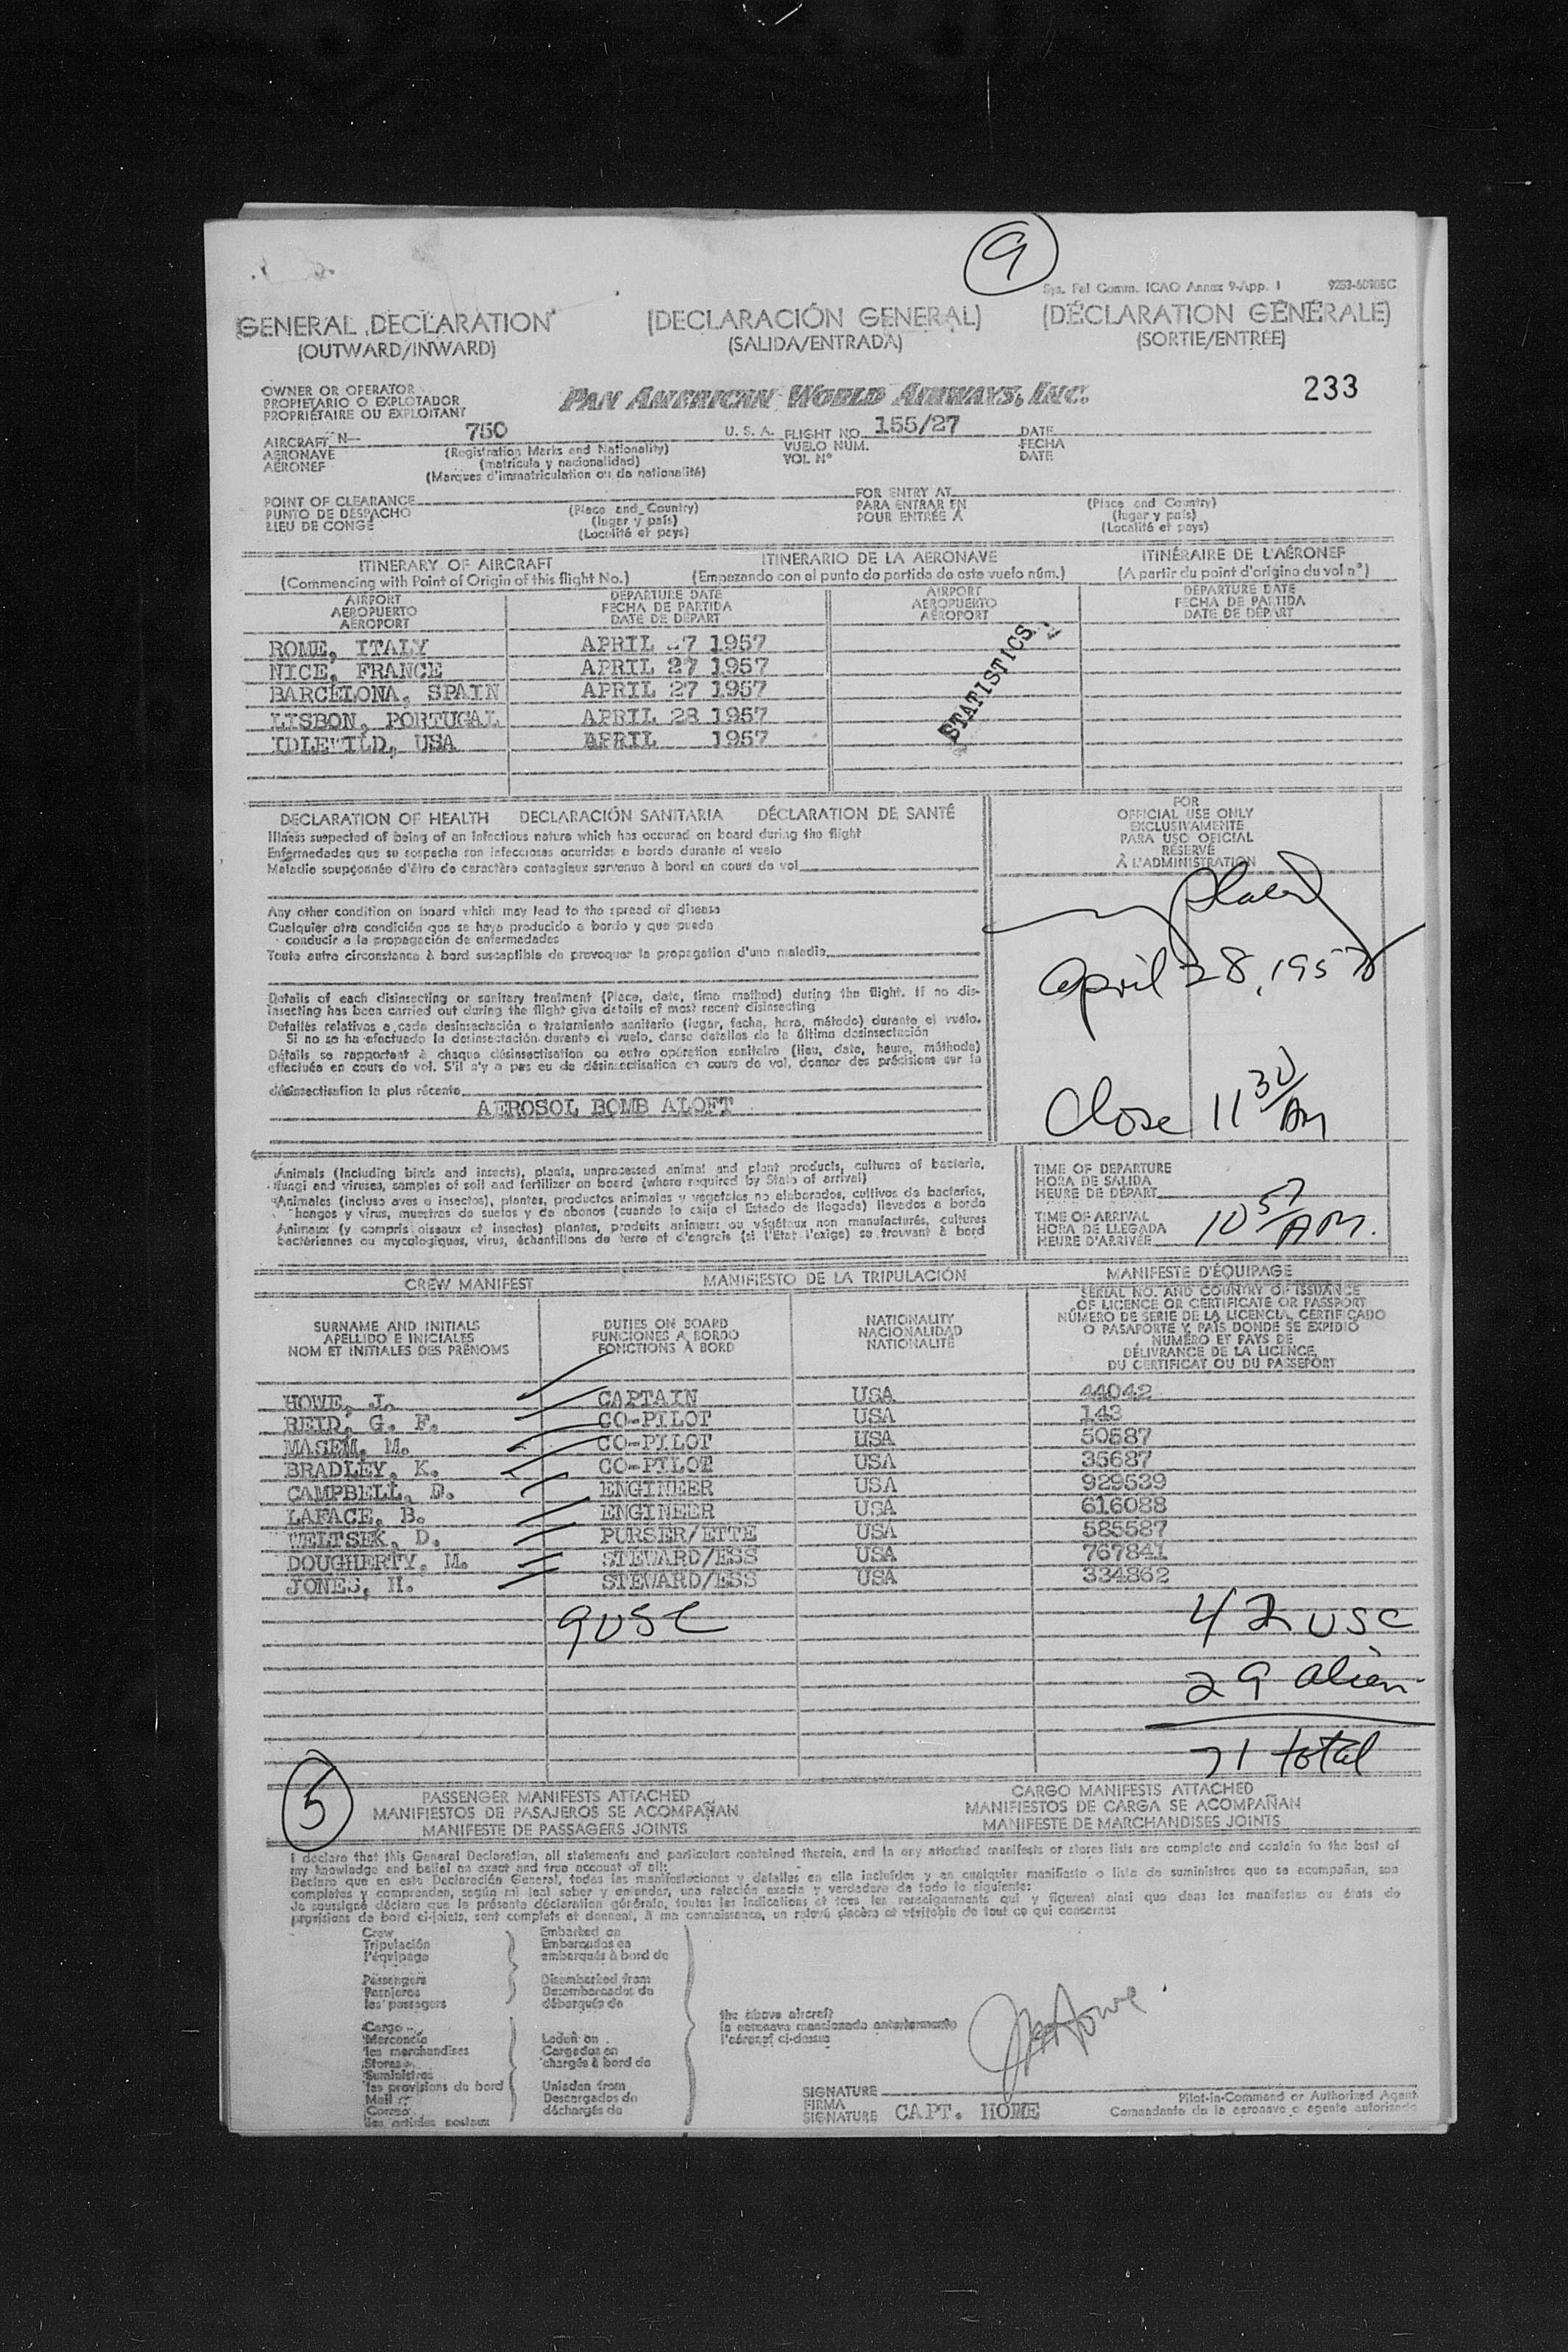 9
Sys. Fel Comm. ICAO Annex 9-App. I 9253-60105C
GENERAL DECLARATION (DECLARACIÓN GENERAL) (DÉCLARATION GÉNÉRALE)
(OUTWARD/INWARD) (SALIDA/ENTRADA) (SORTIE/ENTRÉE)
OWNER OR OPERATOR
PROPIETARIO O EXPLOTADOR
PROPRIÉTAIRE OU EXPLOITANT
PAN AMERICAN WORLD AIRWAYS, INC.
233
AIRCRAFT N 750 U. S. A. FLIGHT NO. 155/27 DATE
AERONAVE (Registration Marks and Nationality) VUELO NUM. FECHA
AÉRONEF (matrícula y nacionalidad) VOL Nº DATE
(Marques d'immatriculation ou de nationalité)
POINT OF CLEARANCE FOR ENTRY AT
PUNTO DE DESPACHO (Place and Country) PARA ENTRAR EN (Place and Country)
LIEU DE CONGÉ (lugar y país) POUR ENTRÉE A (lugar y país)
(Localité et pays) (Localité et pays)
ITINERARY OF AIRCRAFT ITINERARIO DE LA AERONAVE ITINÉRAIRE DE L'AÉRONEF
(Commencing with Point of Origin of this flight No.) (Empezando con el punto de partida de este vuelo núm.) (A partir du point d'origine du vol nº)
AIRPORT DEPARTURE DATE AIRPORT DEPARTURE DATE
AEROPUERTO FECHA DE PARTIDA AEROPUERTO FECHA DE PARTIDA
AÉROPORT DATE DE DÉPART AÉROPORT DATE DE DÉPART
ROME, ITALY APRIL 27 1957
NICE, FRANCE APRIL 27 1957
BARCELONA, SPAIN APRIL 27 1957
LISBON, PORTUGAL APRIL 28 1957
IDLEWILD, USA APRIL 1957
STATISTICS
DECLARATION OF HEALTH DECLARACIÓN SANITARIA DÉCLARATION DE SANTÉ
Illness suspected of being of an infectious nature which has occured on board during the flight
Enfermedades que su sospecha son infecciosas ocurridas a bordo durante el vuelo
Maladie soupçonnée d'être de caractère contagieux survenue à bord en cours de vol
Any other condition on board which may lead to the spread of disease
Cualquier otra condición que se haya producido a bordo y que pueda
conducir a la propagación de enfermedades
Toute autre circonstance à bord susceptible de provoquer la propagation d'une maladie
Details of each disinsecting or sanitary treatment (Place, date, time method) during the flight. If no dis-
insecting has been carried out during the flight give details of most recent disinsecting
Detalles relativos a cada desinsectación o tratamiento sanitario (lugar, fecha, hora, método) durante el vuelo.
Si no se ha efectuado la desinsectación durante el vuelo, danse detalles de la última desinsectación
Détails se rapportant à chaque désinsectisation ou autre opération sanitaire (lieu, date, heure, méthode)
effectuée en cours de vol. S'il n'y a pas eu de désinsectisation en cours de vol, donner des précisions sur la
désinsectisation la plus récente
AEROSOL BOMB ALOFT
FOR
OFFICIAL USE ONLY
EXCLUSIVAMENTE
PARA USO OFICIAL
RÉSERVÉ
À L'ADMINISTRATION
April 28, 1957
Close 11 30 AM
Animals (including birds and insects), plants, unprocessed animal and plant products, cultures of bacteria,
fungi and viruses, samples of soil and fertilizer on board (where required by State of arrival)
Animales (incluso aves e insectos), plantas, productos animales y vegetales no elaborados, cultivos de bacterias,
hongos y virus, muestras de suelos y de abonos (cuando lo exija el Estado de llegada) llevados a bordo
Animaux (y compris oiseaux et insectes) plantes, produits animaux ou végétaux non manufacturés, cultures
bactériennes ou mycologiques, virus, échantillons de terre et d'engrais (si l'État l'exige) se trouvant à bord
TIME OF DEPARTURE
HORA DE SALIDA
HEURE DE DÉPART
TIME OF ARRIVAL
HORA DE LLEGADA
HEURE D'ARRIVÉE
10 57 AM.
CREW MANIFEST MANIFIESTO DE LA TRIPULACIÓN MANIFESTE D'ÉQUIPAGE
SURNAME AND INITIALS
APELLIDO E INICIALES
NOM ET INITIALES DES PRÉNOMS
DUTIES ON BOARD
FUNCIONES A BORDO
FONCTIONS À BORD
NATIONALITY
NACIONALIDAD
NATIONALITÉ
SERIAL NO. AND COUNTRY OF ISSUANCE
OF LICENCE OR CERTIFICATE OR PASSPORT
NÚMERO DE SERIE DE LA LICENCIA, CERTIFICADO
O PASAPORTE Y PAÍS DONDE SE EXPIDIÓ
NUMÉRO ET PAYS DE
DÉLIVRANCE DE LA LICENCE,
DU CERTIFICAT OU DU PASSEPORT
HOWE, J. CAPTAIN USA 44042
REID, G. F. CO-PILOT USA 143
MASEM, M. CO-PILOT USA 50587
BRADLEY, K. CO-PILOT USA 35687
CAMPBELL, D. ENGINEER USA 929539
LAFACE, B. ENGINEER USA 616088
WELTSEK, D. PURSER/ETTE USA 585587
DOUGHERTY, M. STEWARD/ESS USA 767841
JONES, H. STEWARD/ESS USA 334862
9 USC 42 USC
29 alien
71 total
5
PASSENGER MANIFESTS ATTACHED CARGO MANIFESTS ATTACHED
MANIFIESTOS DE PASAJEROS SE ACOMPAÑAN MANIFIESTOS DE CARGA SE ACOMPAÑAN
MANIFESTE DE PASSAGERS JOINTS MANIFESTE DE MARCHANDISES JOINTS
I declare that this General Declaration, all statements and particulars contained therein, and in any attached manifests or stores lists are complete and contain to the best of
my knowledge and belief an exact and true account of all:
Declaro que en este Declaración General, todas las manifestaciones y detalles en ella incluídos y en cualquier manifiesto o lista de suministros que se acompañan, son
completos y comprenden, según mi leal saber y entender, una relación exacta y verdadera de todo lo siguiente:
Je soussigné déclare que la présente déclaration générale, toutes les indications et tous les renseignements qui y figurent ainsi que dans les manifestes ou états de
provisions de bord ci-joints, sont complets et donnent, à ma connaissance, un relevé sincère et véritable de tout ce qui concerne:
Crew Embarked on
Tripulación Embarcados en
l'équipage embarqués à bord de
Passengers Disembarked from
Pasajeros Desembarcados de
les passagers débarqués de
the above aircraft
la aeronave mencionada anteriormente
l'aéronef ci-dessus
Cargo
Mercancía Laden on
les marchandises Cargados en
Stores chargés à bord de
Suministros
les provisions de bord Unladen from
Mail Descargados de
Correo déchargés de
les articles postaux
J Howe
SIGNATURE Pilot-in-Command or Authorized Agent
FIRMA Comandante de la aeronave o agente autorizado
SIGNATURE CAPT. HOWE